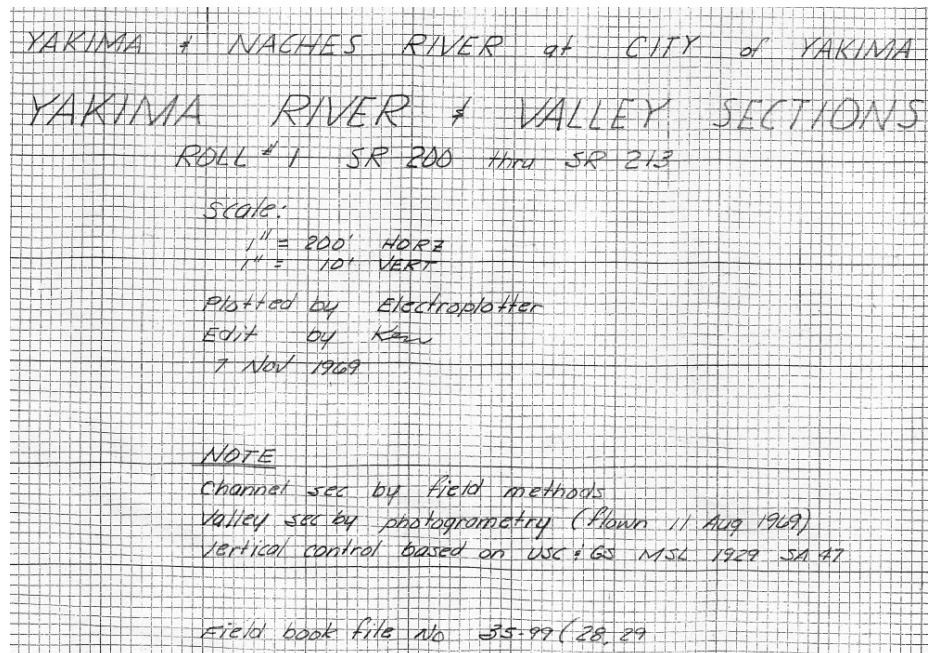 YAKIMA & NACHES RIVER at CITY of YAKIMA
YAKIMA RIVER & VALLEY SECTIONS
ROLL #1 SR 200 thru SR 213
Scale:
1" = 200' HORZ
1" = 10' VERT
Plotted by Electroplotter
Edit by
7 Nov 1969
NOTE
Channel sec by field methods
Valley sec by photogrametry (flown 11 Aug 1969)
Vertical control based on USC & GS MSL 1929 SA 47
Field book file No 35-99 (28, 29